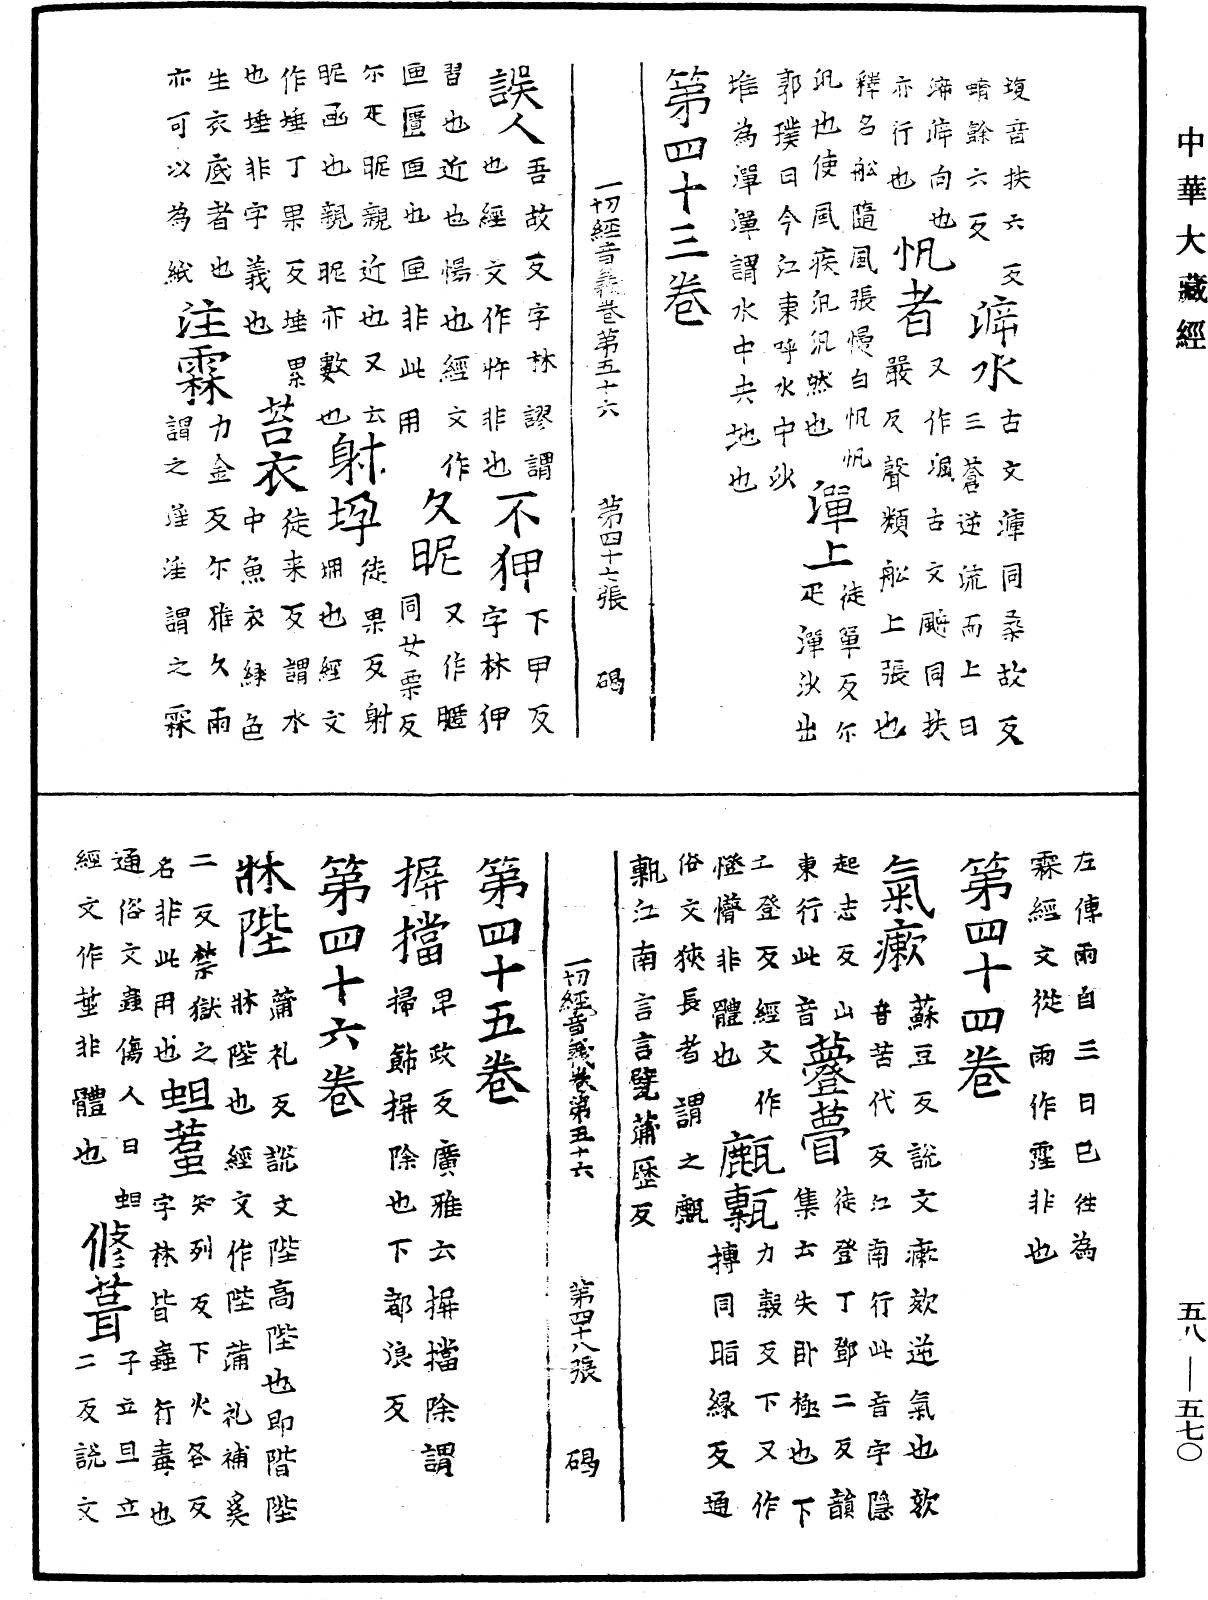 中華大藏經
複音扶六反
蜻餘六反
泝水
古文㴑同桑故反
三蒼逆流而上曰
泝泝向也
帆者
又作颿古文颿同扶
嚴反聲類船上張也
亦行也
釋名船隨風張幔白帆帆
汎也使風疾汎汎然也
潬上
徒單反尒
疋潬沙出
郭璞曰今江東呼水中沙
堆為潬潬謂水中央地也
第四十三卷
一切經音義卷第五十六 第四十七張 碣
誤人
吾故反字林謬謂
也經文作忤非也
不狎
下甲反
字林狎
習也近也惕也經文作
匣匱匣也匣非此用
久昵
又作暱
同女栗反
尒疋昵親近也又云
昵亟也親昵亦數也
射垜
徒果反射
堋也經文
作埵丁果反埵累
也埵非字義也
苔衣
徒来反謂水
中魚衣綠色
生衣底者也
亦可以為紙
注霖
力金反尒雅久雨
謂之淫淫謂之霖
左傳雨自三日已往為
霖經文從雨作霪非也
第四十四卷
氣瘶
蘇豆反說文瘶欬逆氣也欬
音苦代反江南行此音字隱
起志反山
東行此音
䠬瞢
徒登丁鄧二反韻
集云失卧極也下
亡登反經文作
憕懵非體也
甂甎
力穀反下又作
摶同脂緣反通
俗文狹長者謂之甎
甎江南言言甓蒲歷反
一切經音義卷第五十六 第四十八張 碣
第四十五卷
摒擋
早政反廣雅云摒擋除謂
掃飾摒除也下都浪反
第四十六卷
牀陛
蒲礼反說文陛高陛也即階陛
牀陛也經文作陛蒲礼補奚
二反禁獄之
名非此用也
蛆蠚
知列反下火各反
字林皆蠚行毒也
通俗文蠚傷人曰蛆
經文作蓳非體也
脩葺
子立且立
二反說文
五八—五七〇